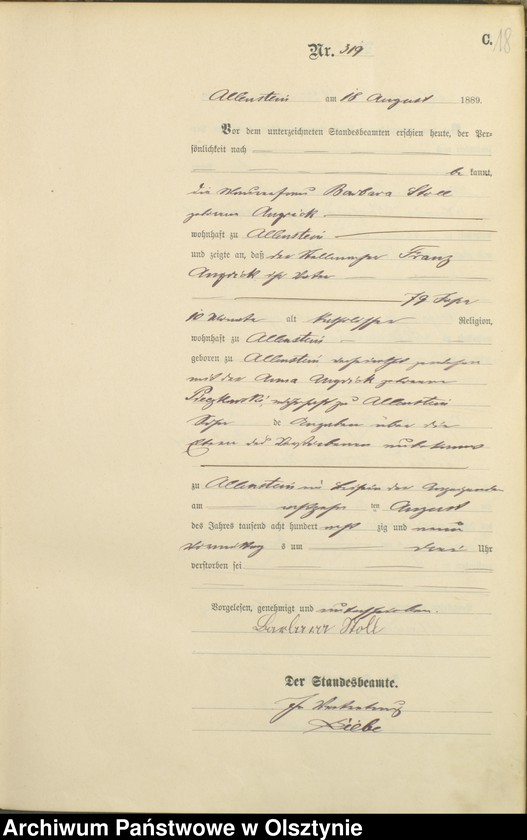 C. 18
Nr. 319
Allenstein am 18 August 1889.
Vor dem unterzeichneten Standesbeamten erschien heute, der Per-
sönlichkeit nach
be kannt,
die Barbara Stoll
geborene Angrick
wohnhaft zu Allenstein
und zeigte an, daß der Franz
Angrick ihr Vater
79 Jahre
10 Monate alt katholischer Religion,
wohnhaft zu Allenstein
geboren zu Allenstein verheirathet gewesen
mit der Anna Angrick geborene
wohnhaft zu Allenstein
de Angaben über die
Eltern des Verstorbenen unbekannt
zu Allenstein im Beisein der Anzeigende
am achtzehn ten August
des Jahres tausend acht hundert acht zig und neun
Vormittag s um drei Uhr
verstorben sei
Vorgelesen, genehmigt und unterschrieben.
Barbara Stoll
Der Standesbeamte.
In Vertretung